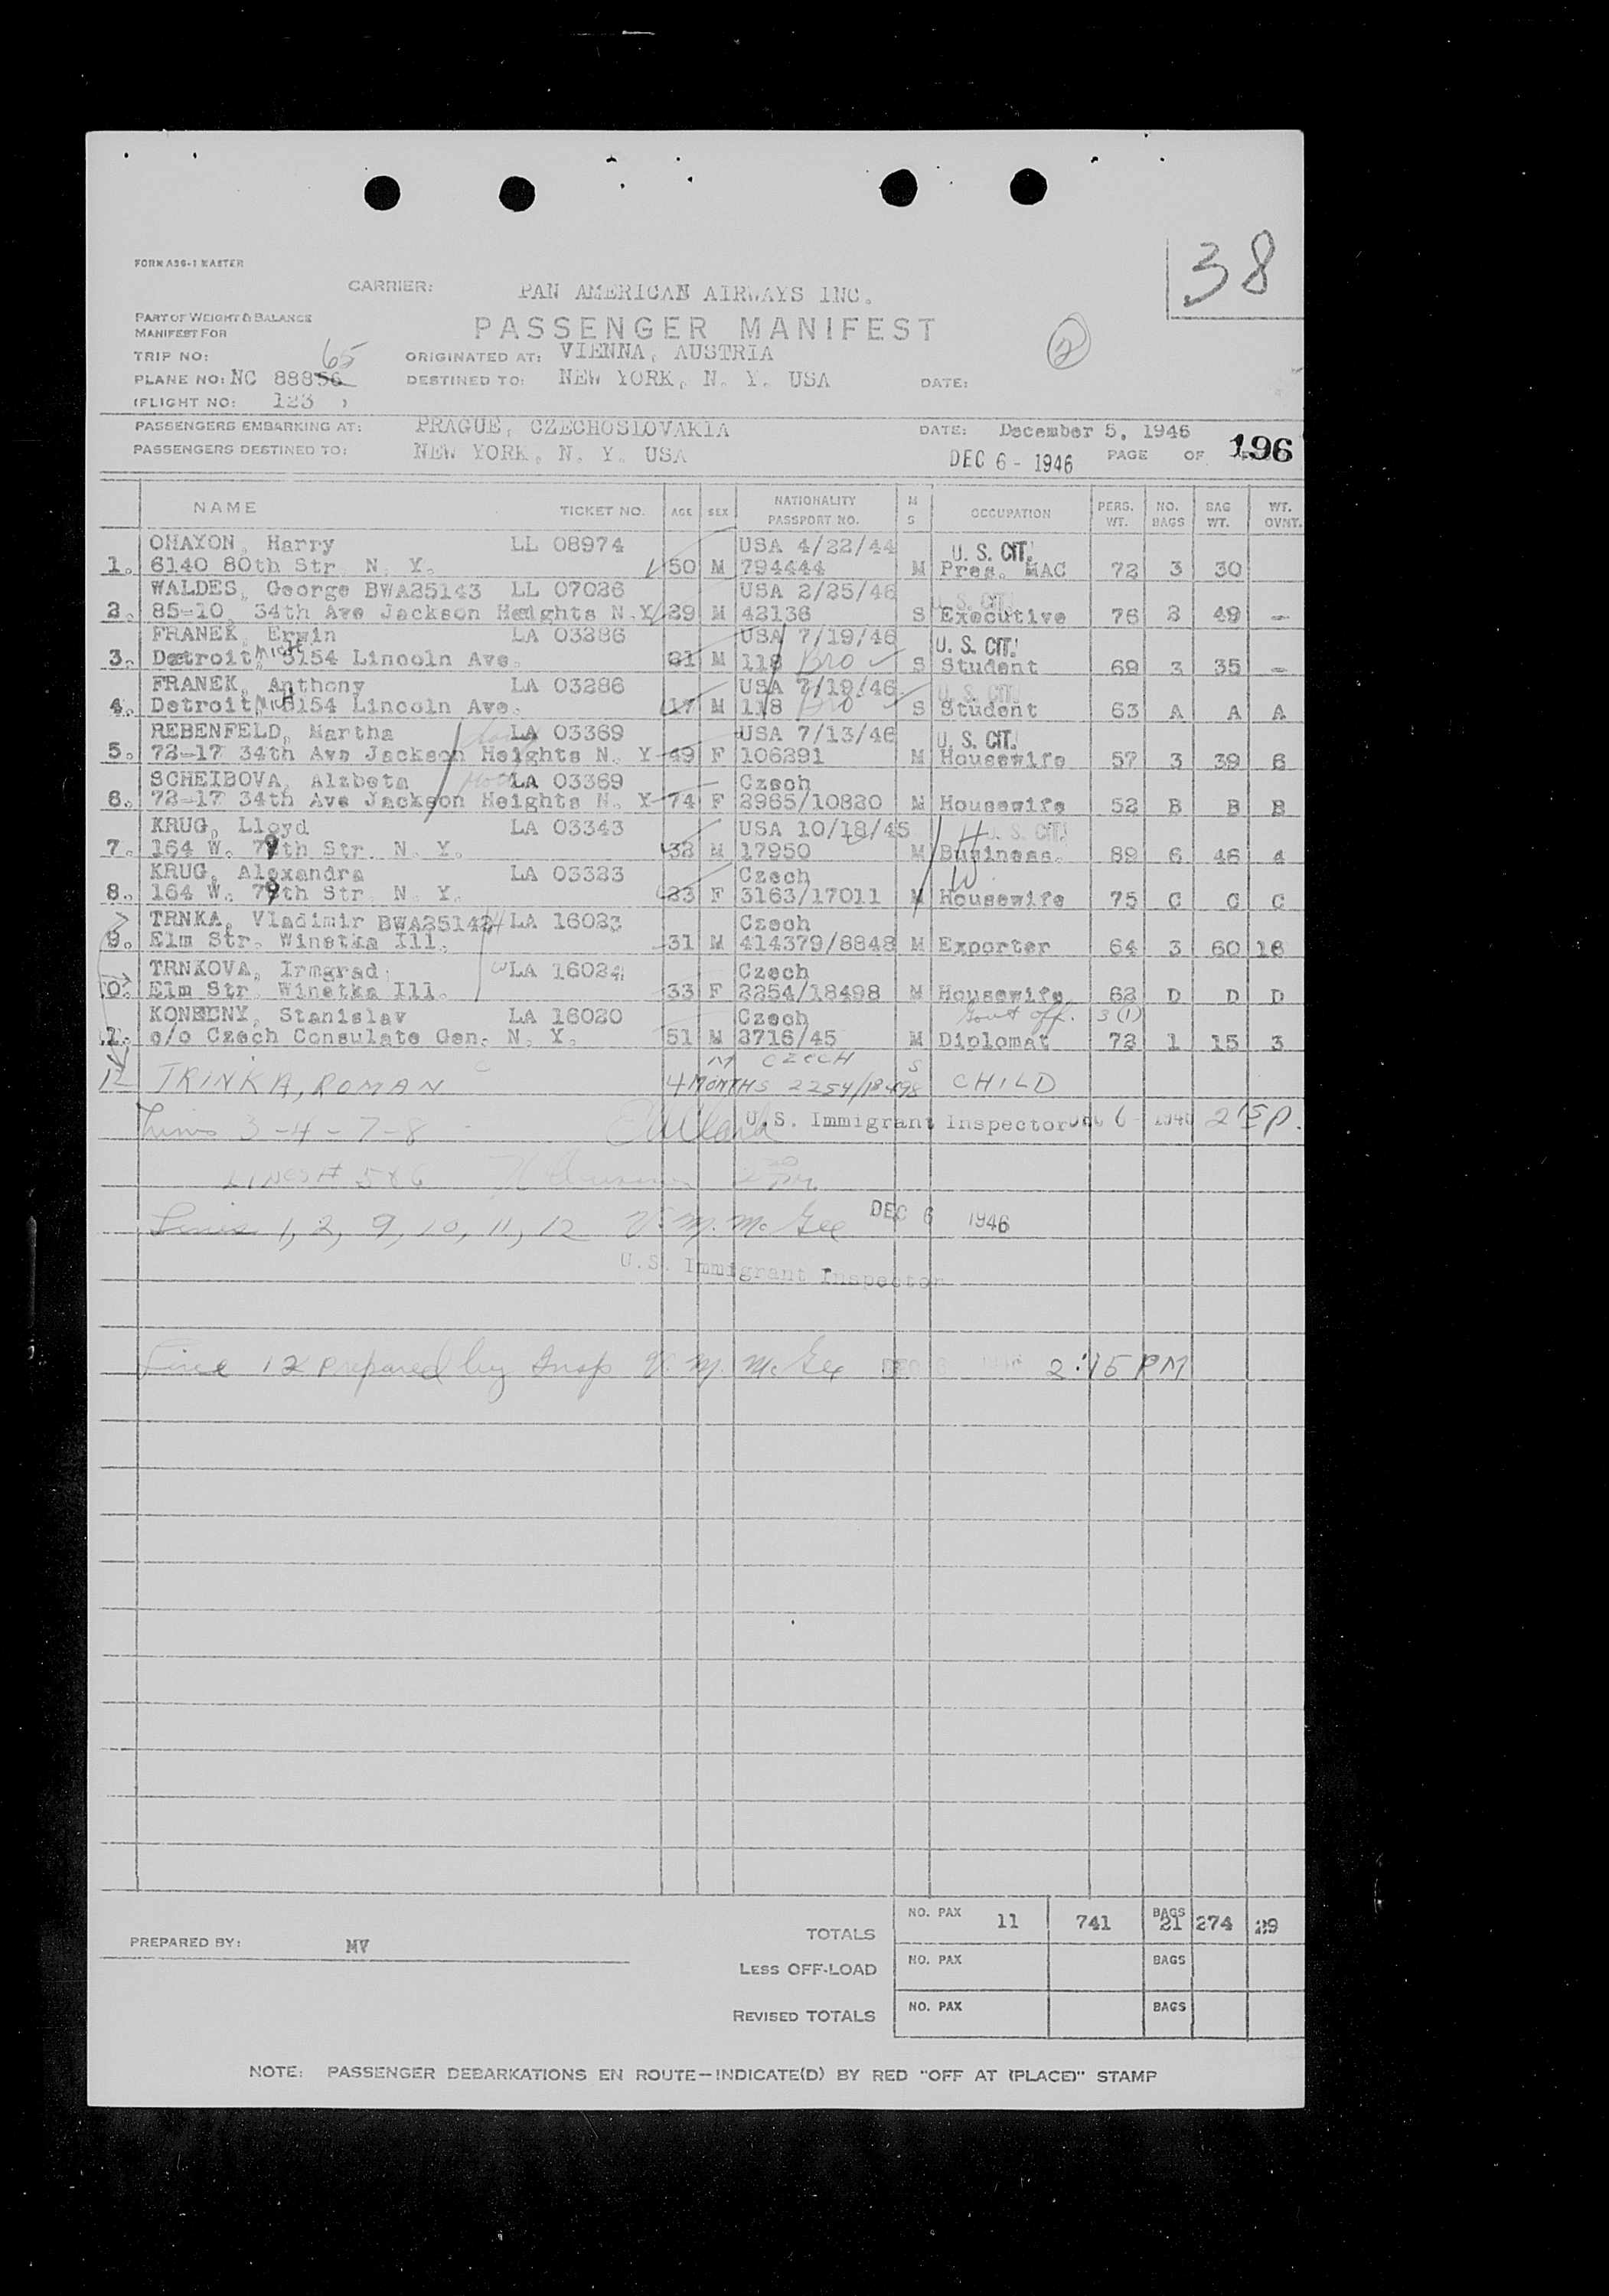 38
FORM A36-1 MASTER
CARRIER: PAN AMERICAN AIRWAYS INC.
PART OF WEIGHT & BALANCE
MANIFEST FOR
PASSENGER MANIFEST
TRIP NO: ORIGINATED AT: VIENNA, AUSTRIA
65
PLANE NO: NC 88856 DESTINED TO: NEW YORK, N. Y. USA DATE:
(FLIGHT NO: 123 )
PASSENGERS EMBARKING AT: PRAGUE, CZECHOSLOVAKIA DATE: December 5, 1946
PASSENGERS DESTINED TO: NEW YORK, N. Y. USA DEC 6 - 1946 PAGE OF 196
NAME TICKET NO. AGE SEX NATIONALITY PASSPORT NO. M S OCCUPATION PERS. WT. NO. BAGS BAG WT. WT. OVNT.
OHAYON, Harry LL 08974 USA 4/22/44 U. S. CIT.
1. 6140 80th Str. N. Y. 50 M 794444 M Pres. MAC 72 3 30
WALDES, George BWA25143 LL 07026 USA 2/25/46 U. S. CIT.
2. 85-10, 34th Ave Jackson Heights N.Y. 29 M 42136 S Executive 76 2 49 -
FRANEK, Erwin LA 03286 USA 7/19/46 U. S. CIT.
3. Detroit, Mich 3154 Lincoln Ave. 21 M 118 Bro S Student 69 3 35 -
FRANEK, Anthony LA 03286 USA 7/19/46 U. S. CIT.
4. Detroit Mich 3154 Lincoln Ave. 17 M 118 Bro S Student 63 A A A
REBENFELD, Martha LA 03369 USA 7/13/46 U. S. CIT.
5. 72-17 34th Ave Jackson Heights N. Y 49 F 106291 M Housewife 57 3 39 6
SCHEIBOVA, Alzbeta LA 03369 Czech
6. 72-17 34th Ave Jackson Heights N. Y 74 F 2965/10820 M Housewife 52 B B B
KRUG, Lloyd LA 03343 USA 10/18/45 H U. S. CIT.
7. 164 W. 79th Str. N. Y. 32 M 17950 M Business. 89 6 46 4
KRUG, Alexandra LA 03323 Czech W
8. 164 W. 79th Str. N. Y. 23 F 3163/17011 M Housewife 75 C C C
TRNKA, Vladimir BWA25142 H LA 16023 Czech
9. Elm Str. Winetka Ill. 31 M 414379/8848 M Exporter 64 3 60 16
TRNKOVA, Irmgrad W LA 16024 Czech
10. Elm Str. Winetka Ill. 33 F 2254/18498 M Housewife 62 D D D
KONECNY, Stanislav LA 16020 Czech Govt off. 3 (1)
11. c/o Czech Consulate Gen. N. Y. 51 M 3716/45 M Diplomat 72 1 15 3
12 TRINKA, ROMAN 4 MONTHS M CZECH 2254/18498 S CHILD
Lines 3-4-7-8 U.S. Immigrant Inspector DEC 6 - 1946 2 15 P.
LINES # 5 & 6
Lines 1, 2, 9, 10, 11, 12 V. M. McGee DEC 6 1946
U.S. Immigrant Inspector
Line 12 prepared by Insp V. M. McGee DEC 6 1946 2:15 PM
TOTALS NO. PAX 11 741 BAGS 21 274 29
PREPARED BY: MV
LESS OFF-LOAD NO. PAX BAGS
REVISED TOTALS NO. PAX BAGS
NOTE: PASSENGER DEBARKATIONS EN ROUTE—INDICATE(D) BY RED "OFF AT (PLACE)" STAMP